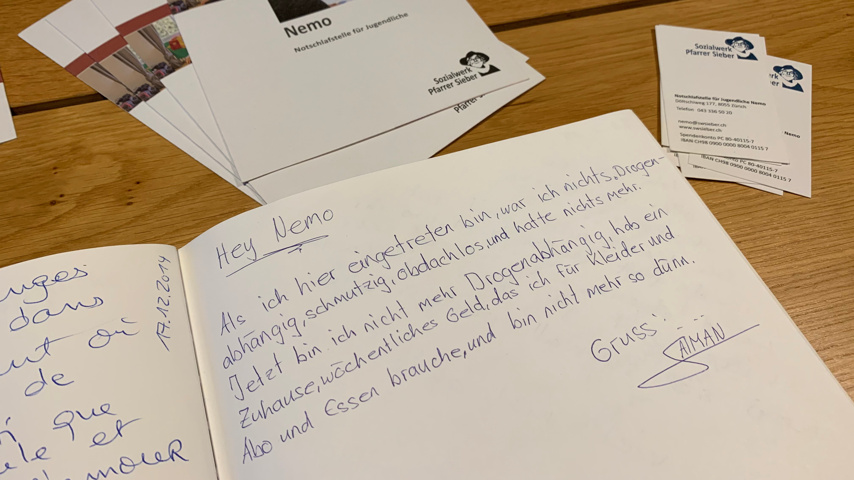 Nemo
Notschlafstelle für Jugendliche
Sozialwerk
Pfarrer Sieber
Pfarrer
Sozialwerk
Pfarrer Sieber
Notschlafstelle für Jugendliche Nemo
8055 Zürich
Telefon
nemo@swsieber.ch
www.swsieber.ch
Spendenkonto PC 80-40115-7
IBAN CH98 0900 0000 8004 0115 7
Nemo
IBAN CH98 0900 0000 8004 0115 7
Hey Nemo
Als ich hier eingetreten bin, war ich nichts, Drogen-
abhängig, schmutzig, obdachlos, und hatte nichts mehr.
Jetzt bin ich nicht mehr Drogenabhängig, hab ein
Zuhause, wöchentliches Geld, das ich für Kleider und
Abo und Essen brauche, und bin nicht mehr so dünn.
Gruss:
17.12.2014
dans
de
que
et